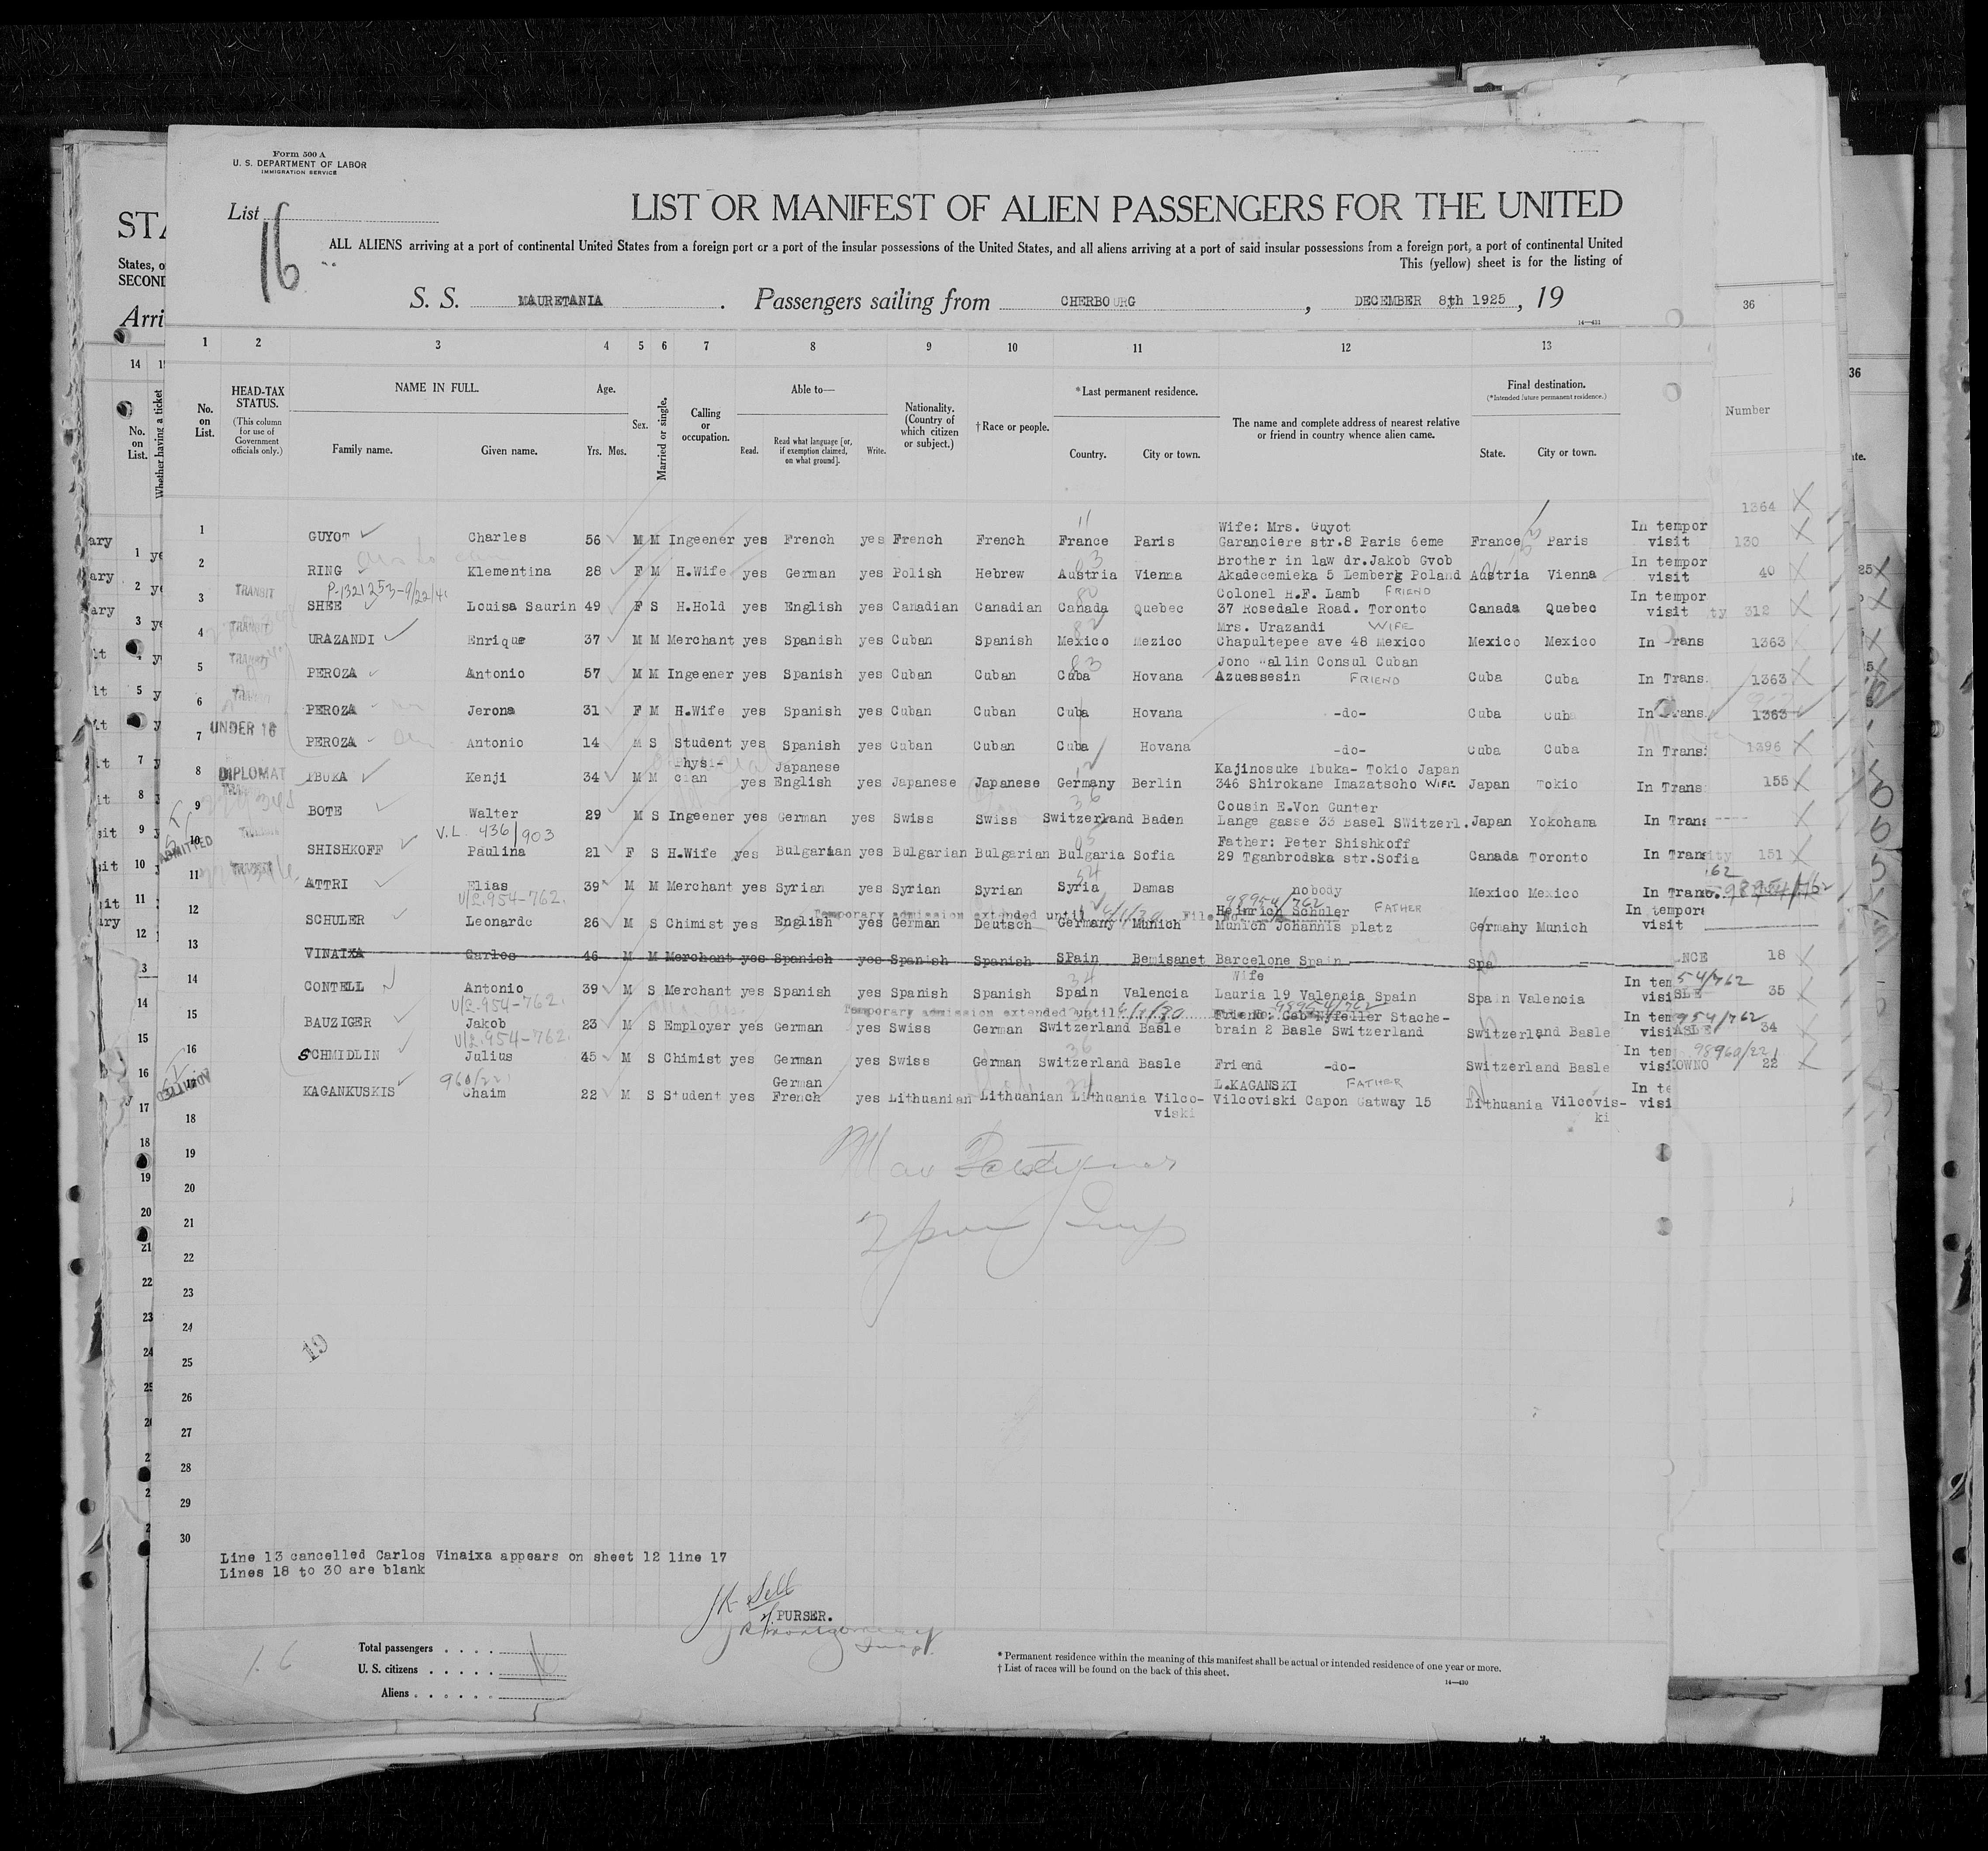 Form 500 A
U. S. DEPARTMENT OF LABOR
IMMIGRATION SERVICE
List
16
LIST OR MANIFEST OF ALIEN PASSENGERS FOR THE UNITED
ALL ALIENS arriving at a port of continental United States from a foreign port or a port of the insular possessions of the United States, and all aliens arriving at a port of said insular possessions from a foreign port, a port of continental United
This (yellow) sheet is for the listing of
S. S. MAURETANIA. Passengers sailing from CHERBOURG, DECEMBER 8th 1925, 19
14—431
1 2 3 4 5 6 7 8 9 10 11 12 13
No. on List.
HEAD-TAX STATUS.
(This column for use of Government officials only.)
NAME IN FULL.
Family name. Given name.
Age.
Yrs. Mos.
Sex.
Married or single.
Calling or occupation.
Able to—
Read. Read what language [or, if exemption claimed, on what ground]. Write.
Nationality. (Country of which citizen or subject.)
† Race or people.
* Last permanent residence.
Country. City or town.
The name and complete address of nearest relative or friend in country whence alien came.
Final destination.
(* Intended future permanent residence.)
State. City or town.
Wife: Mrs. Guyot In tempor
1 GUYOT Charles 56 M M Ingeener yes French yes French French France Paris Garanciere str.8 Paris 6eme France Paris visit
Brother in law dr.Jakob Gvob In tempor
2 RING Klementina 28 F M H.Wife yes German yes Polish Hebrew Austria Vienna Akadecemieka 5 Lemberg Poland Austria Vienna visit
TRANSIT P-1321253-9/22/41 Colonel H.F. Lamb FRIEND In tempor
3 SHEE Louisa Saurin 49 F S H.Hold yes English yes Canadian Canadian Canada Quebec 37 Rosedale Road. Toronto Canada Quebec visit
TRANSIT Mrs. Urazandi WIFE
4 URAZANDI Enrique 37 M M Merchant yes Spanish yes Cuban Spanish Mexico Mezico Chapultepee ave 48 Mexico Mexico Mexico In Trans
TRANSIT Jono Wallin Consul Cuban
5 PEROZA Antonio 57 M M Ingeener yes Spanish yes Cuban Cuban Cuba Hovana Azuessesin FRIEND Cuba Cuba In Trans.
6 PEROZA Jerona 31 F M H.Wife yes Spanish yes Cuban Cuban Cuba Hovana -do- Cuba Cuba In Trans.
UNDER 16
7 PEROZA Antonio 14 M S Student yes Spanish yes Cuban Cuban Cuba Hovana -do- Cuba Cuba In Transi
Physi- Japanese Kajinosuke Ibuka- Tokio Japan
8 DIPLOMAT IBUKA Kenji 34 M M cian yes English yes Japanese Japanese Germany Berlin 346 Shirokane Imazatscho WIFE Japan Tokio In Trans
Cousin E.Von Gunter
9 BOTE Walter 29 M S Ingeener yes German yes Swiss Swiss Switzerland Baden Lange gasse 33 Basel Switzerl. Japan Yokohama In Trans
ADMITTED V.L. 436/903 Father: Peter Shishkoff
10 SHISHKOFF Paulina 21 F S H.Wife yes Bulgarian yes Bulgarian Bulgarian Bulgaria Sofia 29 Tganbrodska str.Sofia Canada Toronto In Trans
11 ATTRI Elias 39 M M Merchant yes Syrian yes Syrian Syrian Syria Damas nobody Mexico Mexico In Trans.
V/L.954-762. Temporary admission extended until File No. 98954/762
Heinrich Schuler FATHER In tempora
12 SCHULER Leonardo 26 M S Chimist yes English yes German Deutsch Germany Munich Munich Johannis platz Germahy Munich visit
13 VINAIXA Carlos 46 M M Merchant yes Spanish yes Spanish Spanish SPain Bemisanet Barcelone Spain Spa
Wife In tem
14 CONTELL Antonio 39 M S Merchant yes Spanish yes Spanish Spanish Spain Valencia Lauria 19 Valencia Spain Spain Valencia visi
V/L.954-762. Temporary admission extended until 98954/762
Geb Nyfeller Stache- In tem
15 BAUZIGER Jakob 23 M S Employer yes German yes Swiss German Switzerland Basle brain 2 Basle Switzerland Switzerland Basle visi
V/L.954-762. In tem
16 SCHMIDLIN Julius 45 M S Chimist yes German yes Swiss German Switzerland Basle Friend -do- Switzerland Basle visi
ADMITTED 960/22 German L.KAGANSKI FATHER In te
17 KAGANKUSKIS Chaim 22 M S Student yes French yes Lithuanian Lithuanian Lithuania Vilco- Vilcoviski Capon Gatway 15 Lithuania Vilcovis- visi
viski ki
18
19
20
21
22
23
24
25
26
27
28
29
30
19
Line 13 cancelled Carlos Vinaixa appears on sheet 12 line 17
Lines 18 to 30 are blank
PURSER.
Total passengers
U. S. citizens
Aliens
16
* Permanent residence within the meaning of this manifest shall be actual or intended residence of one year or more.
† List of races will be found on the back of this sheet.
14—430
36
Number
1364
130
40
312
1363
1363
1363
1396
155
151
18
35
34
98960/22
22